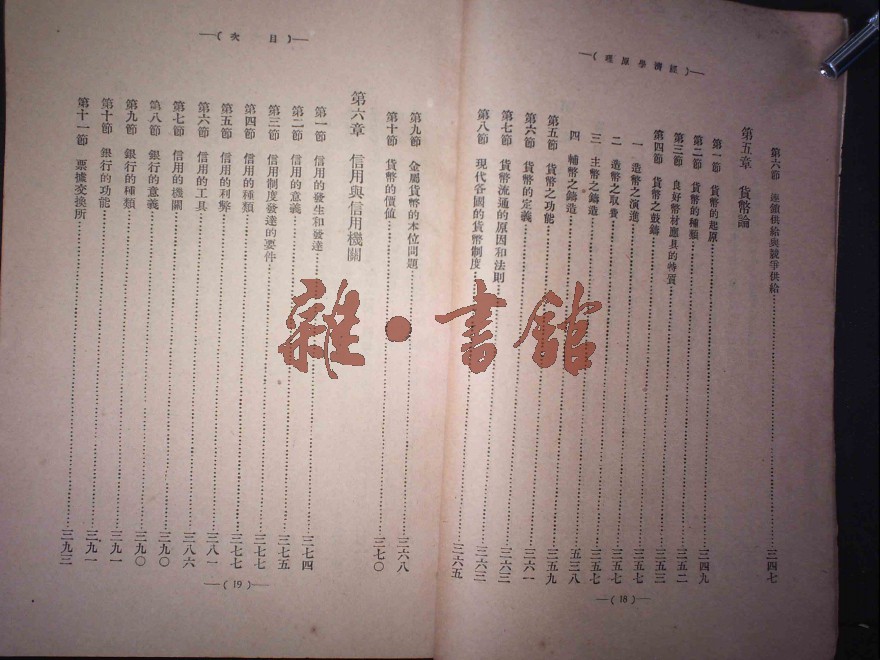 —(經濟學原理)—
第六節 連鎖供給與競爭供給……三四七
第五章 貨幣論
第一節 貨幣的起原……三四九
第二節 貨幣的種類……三五二
第三節 良好幣材應具的特質……三五三
第四節 貨幣之鼓鑄……三五七
一 造幣之演進……三五七
二 造幣之取費……三五七
三 主幣之鑄造……五三八
四 輔幣之鑄造……三五九
第五節 貨幣之功能……三六一
第六節 貨幣的定義……三六三
第七節 貨幣流通的原因和法則……三六三
第八節 現代各國的貨幣制度……三六五
—(18)—
—(目次)—
第九節 金屬貨幣的本位問題……三六八
第十節 貨幣的價値……三七〇
第六章 信用與信用機關
第一節 信用的發生和發達……三七四
第二節 信用的意義……三七五
第三節 信用制度發達的要件……三七七
第四節 信用的種類……三七七
第五節 信用的利弊……三八一
第六節 信用的工具……三八六
第七節 信用的機關……三九〇
第八節 銀行的意義……三九〇
第九節 銀行的種類……三九一
第十節 銀行的功能……三九一
第十一節 票據交換所……三九三
—(19)—
雜•書館